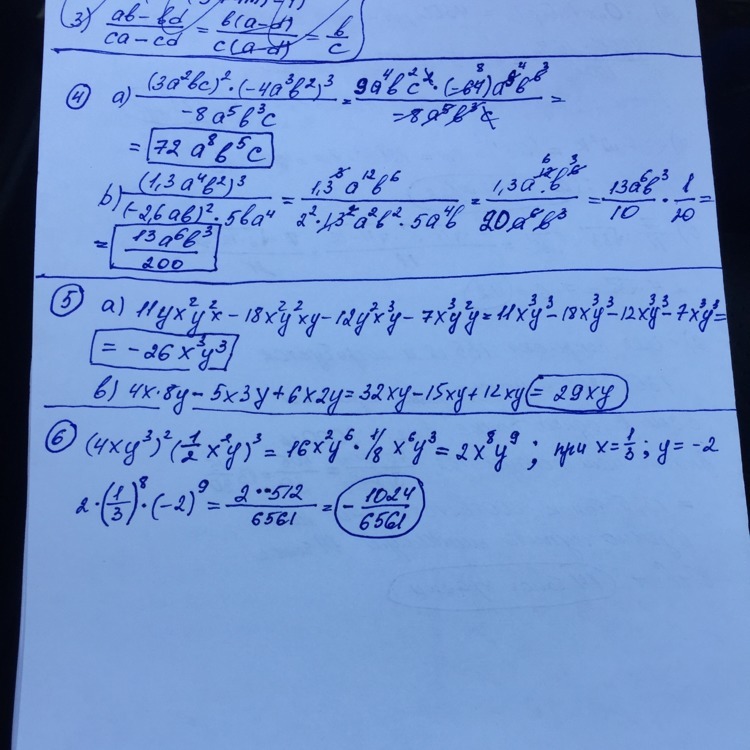 3) (ab - bd)/(ca - cd) = b(a-d)/c(a-d) = b/c
④ а) (3a²bc)² · (-4a³b²)³ / -8a⁵b³c = 9a⁴b²c² · (-64)a⁹b⁶ / -8a⁵b³c =
= 72 a⁸b⁵c
b) (1,3a⁴b²)³ / (-2,6ab)² · 5ba⁴ = 1,3³ a¹²b⁶ / 2² · 1,3² a²b² · 5a⁴b = 1,3a⁶b³ / 20a⁶b³ = 13a⁶b³/10 · 1/20 =
= 13a⁶b³/200
⑤ а) 11yx²y²x - 18x²y²xy - 12y²x³y - 7x³y²y = 11x³y³ - 18x³y³ - 12x³y³ - 7x³y³ =
= -26x³y³
в) 4x·8y - 5x3y + 6x2y = 32xy - 15xy + 12xy = 29xy
⑥ (4xy³)² (1/2 x²y)³ = 16x²y⁶ · 1/8 x⁶y³ = 2x⁸y⁹ ; при x = 1/3 ; y = -2
2 · (1/3)⁸ · (-2)⁹ = 2·-512/6561 = - 1024/6561